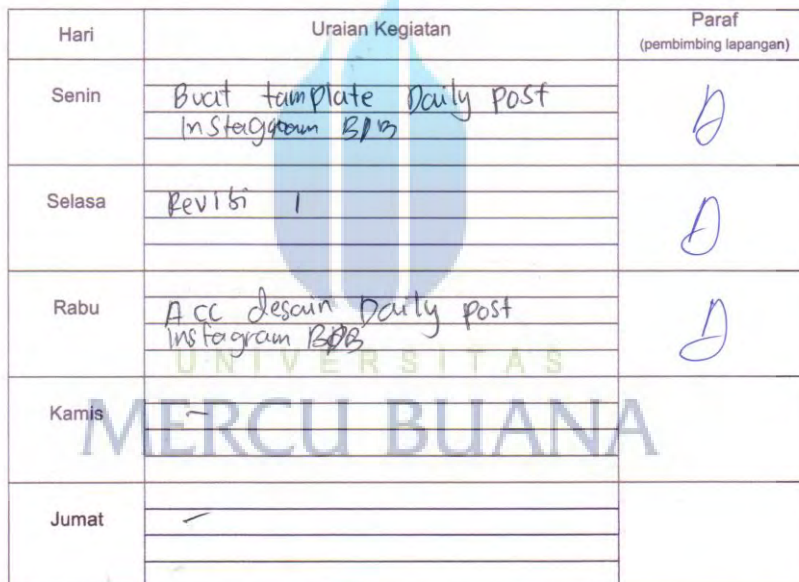 Hari Uraian Kegiatan Paraf
(pembimbing lapangan)
Senin Buat tamplate Daily post
Instagram BDB
Selasa Revisi 1
Rabu Acc desain Daily post
Instagram BDB
UNIVERSITAS
Kamis -
MERCU BUANA
Jumat -